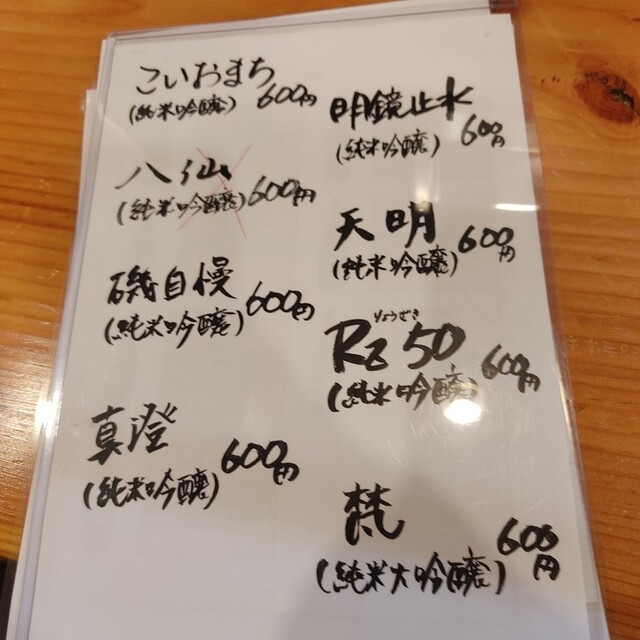 こいおまち
(純米吟醸) 600円
八仙
(純米吟醸) 600円
磯自慢
(純米吟醸) 600円
真澄
(純米吟醸) 600円
明鏡止水
(純米吟醸) 600円
天明
(純米吟醸) 600円
りょうぜき
Rz50
(純米吟醸) 600円
梵
(純米大吟醸) 600円